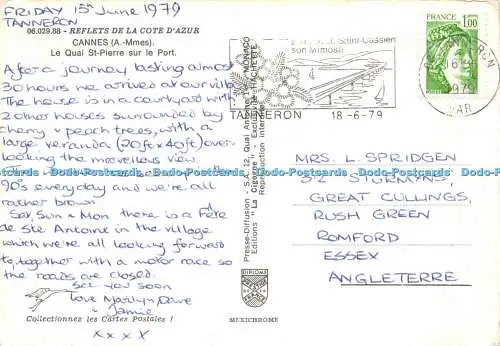 FRIDAY 15th June 1979
TANNERON
06.029.88 - REFLETS DE LA COTE D'AZUR
CANNES (A.-Mmes).
Le Quai St-Pierre sur le Port.
After a journey lasting almost
30 hours we arrived at our villa
The house is in a courtyard with
2 other houses surrounded by
cherry & peach trees, with a
large veranda (20ft x 40ft) over-
looking the marvellous view
90's everyday and we're all
rather brown
Sat, Sun & Mon there is a Fête
de Ste Antoine in the village
which we're all looking forward
to, together with a motor race so
the roads are closed.
See you soon
Love Marilyn, Dave
& Jamie
x x x x
Collectionnez les Cartes Postales !
MEXICHROME
Presse-Diffusion - S.A. 12, Quai Antoine 1er - MONACO
Editions "La Cigogne" - Exclusivité HACHETTE
Reproduction interdite
DIPLOME
FRANCE
Saint-Cassien
son Mimosa
TANNERON 18-6-79
FRANCE
1,00
POSTES
VAR
MRS. L. SPRIDGEN
32 STURMYNS,
GREAT CULLINGS,
RUSH GREEN
ROMFORD
ESSEX
ANGLETERRE
Dodo-Postcards Dodo-Postcards Dodo-Postcards Dodo-Postcards Dodo-Postcards